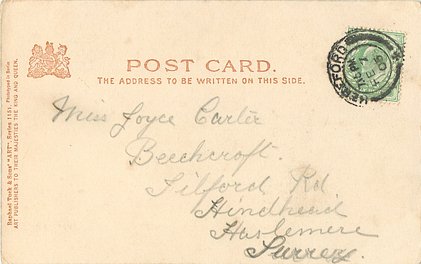 POST CARD.
THE ADDRESS TO BE WRITTEN ON THIS SIDE.
HEREFORD
Miss Joyce Carter
Beechcroft.
Tilford Rd
Hindhead
Haslemere
Surrey.
Raphael Tuck & Sons' "ART" Series 1151.
ART PUBLISHERS TO THEIR MAJESTIES THE KING AND QUEEN.